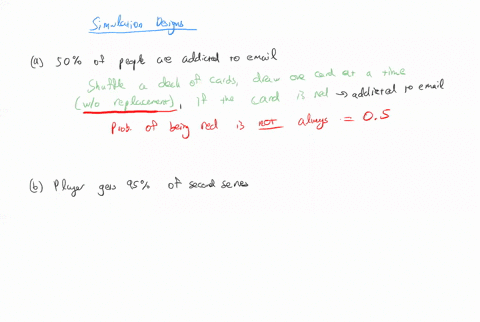 Simulation Designs
(a) 50% of people are addicted to email
Shuffle a deck of cards, draw one card at a time
(w/o replacement), if the card is red → addicted to email
Prob of being red is not always = 0.5
(b) Player gets 95% of second serves